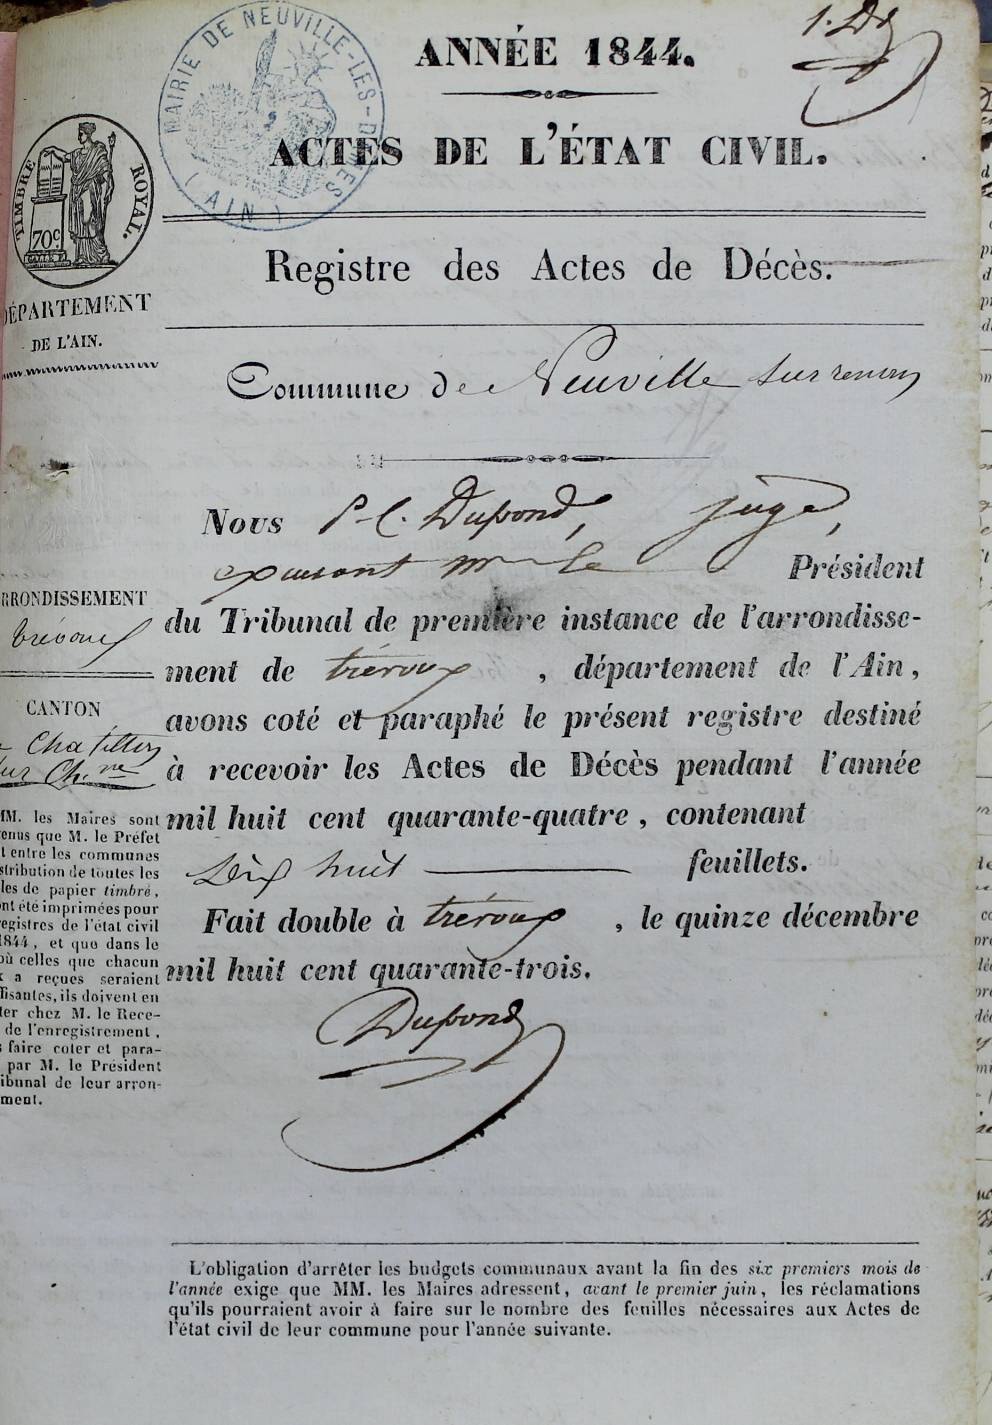 1. Dd
ANNÉE 1844.
MAIRIE DE NEUVILLE-LES-DAMES
( AIN )
ACTES DE L'ÉTAT CIVIL.
TIMBRE ROYAL.
70c.
Registre des Actes de Décès.
DÉPARTEMENT
DE L'AIN.
Commune de Neuville sur renon
Nous P-C. Dupond, juge,
exerçant pr le Président
du Tribunal de première instance de l'arrondisse-
ment de trévoux, département de l'Ain,
avons coté et paraphé le présent registre destiné
à recevoir les Actes de Décès pendant l'année
mil huit cent quarante-quatre, contenant
dix huit feuillets.
Fait double à trévoux, le quinze décembre
mil huit cent quarante-trois.
Dupond
RRONDISSEMENT
trévoux
CANTON
Chatillon
sur Ch.ne
MM. les Maires sont
enus que M. le Préfet
t entre les communes
stribution de toutes les
les de papier timbré,
nt été imprimées pour
egistres de l'état civil
1844, et que dans le
où celles que chacun
x a reçues seraient
fisantes, ils doivent en
ter chez M. le Rece-
de l'enregistrement,
s faire coter et para-
par M. le Président
ibunal de leur arron-
ment.
L'obligation d'arrêter les budgets communaux avant la fin des six premiers mois de
l'année exige que MM. les Maires adressent, avant le premier juin, les réclamations
qu'ils pourraient avoir à faire sur le nombre des feuilles nécessaires aux Actes de
l'état civil de leur commune pour l'année suivante.